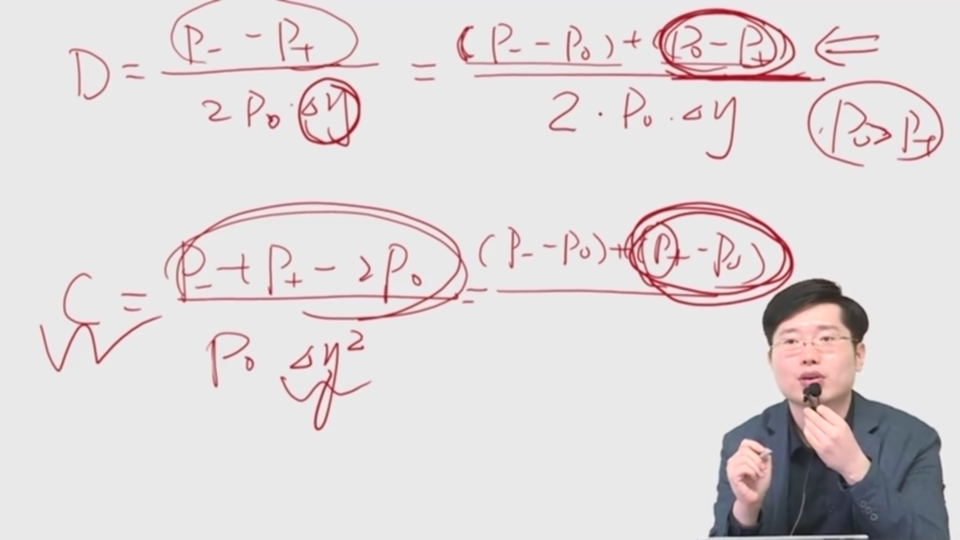 D = (P₋ - P₊) / (2 P₀ · Δy) = ((P₋ - P₀) + (P₀ - P₊)) / (2 · P₀ · Δy) ⇐
P₀ > P₊
C = (P₋ + P₊ - 2P₀) / (P₀ Δy²) = (P₋ - P₀) + (P₊ - P₀)